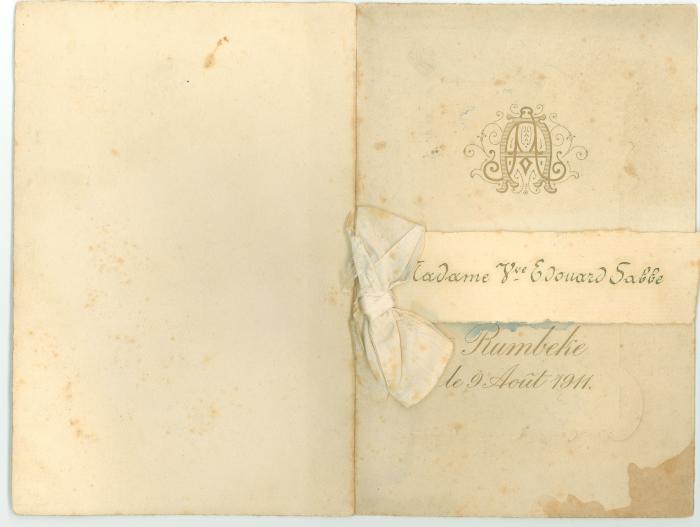 Madame Vve Edouard Sabbe
Rumbeke
le 9 Août 1911.